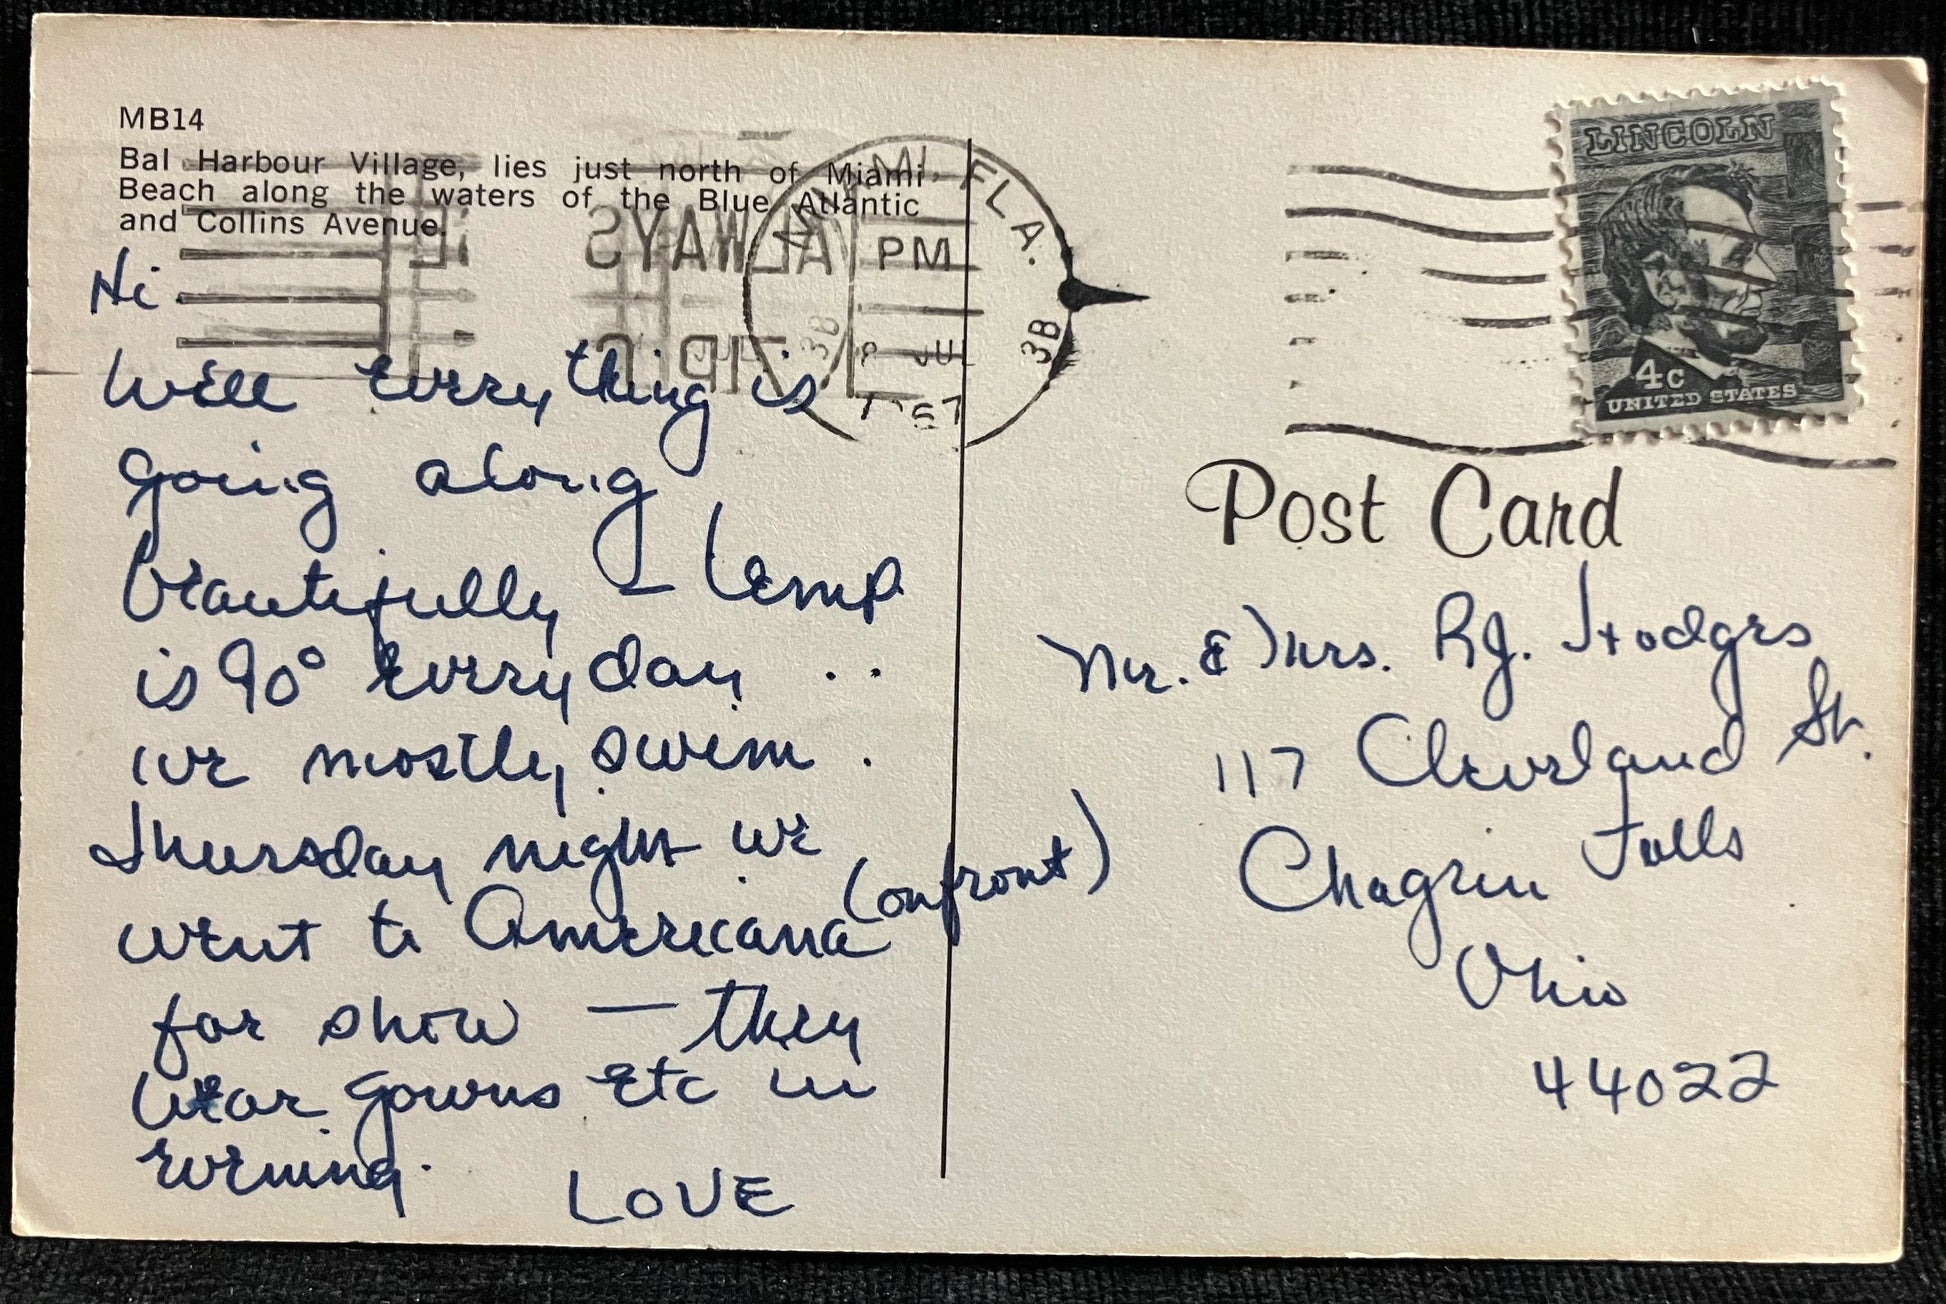 MB14
Bal Harbour Village, lies just north of Miami
Beach along the waters of the Blue Atlantic
and Collins Avenue.
Hi
Well everything is
going along
beautifully — temp
is 90° everyday ..
we mostly swim.
Thursday night we
went to Americana (on front)
for show — they
wear gowns etc in
evening.
LOVE
MI, FLA.
PM
JUL
1967
3B
ALWAYS
ZIP
LINCOLN
4c
UNITED STATES
Post Card
Mr. & Mrs. R.J. Hodges
117 Cleveland St.
Chagrin Falls
Ohio
44022